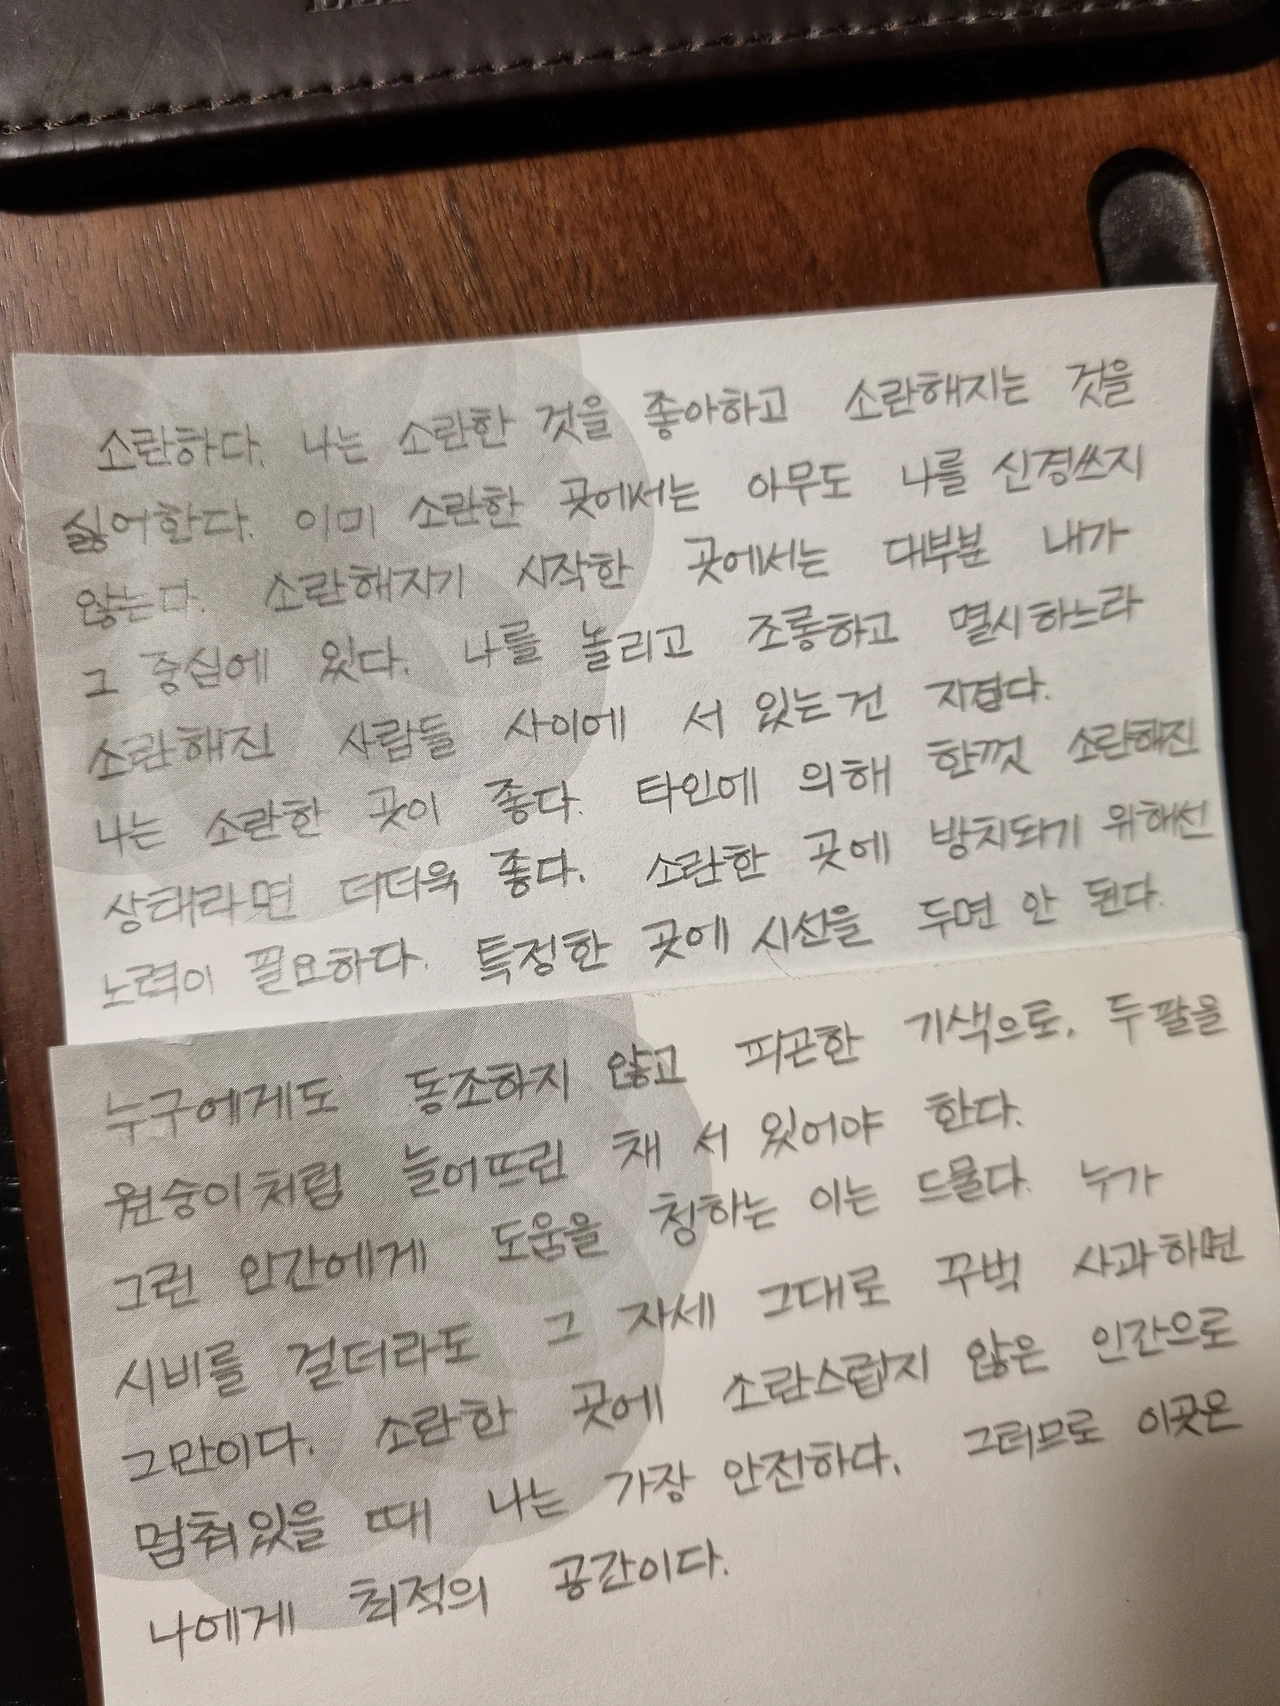 소란하다. 나는 소란한 것을 좋아하고 소란해지는 것을
싫어한다. 이미 소란한 곳에서는 아무도 나를 신경쓰지
않는다. 소란해지기 시작한 곳에서는 대부분 내가
그 중심에 있다. 나를 놀리고 조롱하고 멸시하느라
소란해진 사람들 사이에 서 있는건 지겹다.
나는 소란한 곳이 좋다. 타인에 의해 한껏 소란해진
상태라면 더더욱 좋다. 소란한 곳에 방치되기 위해선
노력이 필요하다. 특정한 곳에 시선을 두면 안 된다.
누구에게도 동조하지 않고 피곤한 기색으로. 두팔을
원숭이처럼 늘어뜨린 채 서 있어야 한다.
그런 인간에게 도움을 청하는 이는 드물다. 누가
시비를 걸더라도 그 자세 그대로 꾸벅 사과하면
그만이다. 소란한 곳에 소란스럽지 않은 인간으로
멈춰있을 때 나는 가장 안전하다. 그러므로 이곳은
나에게 최적의 공간이다.